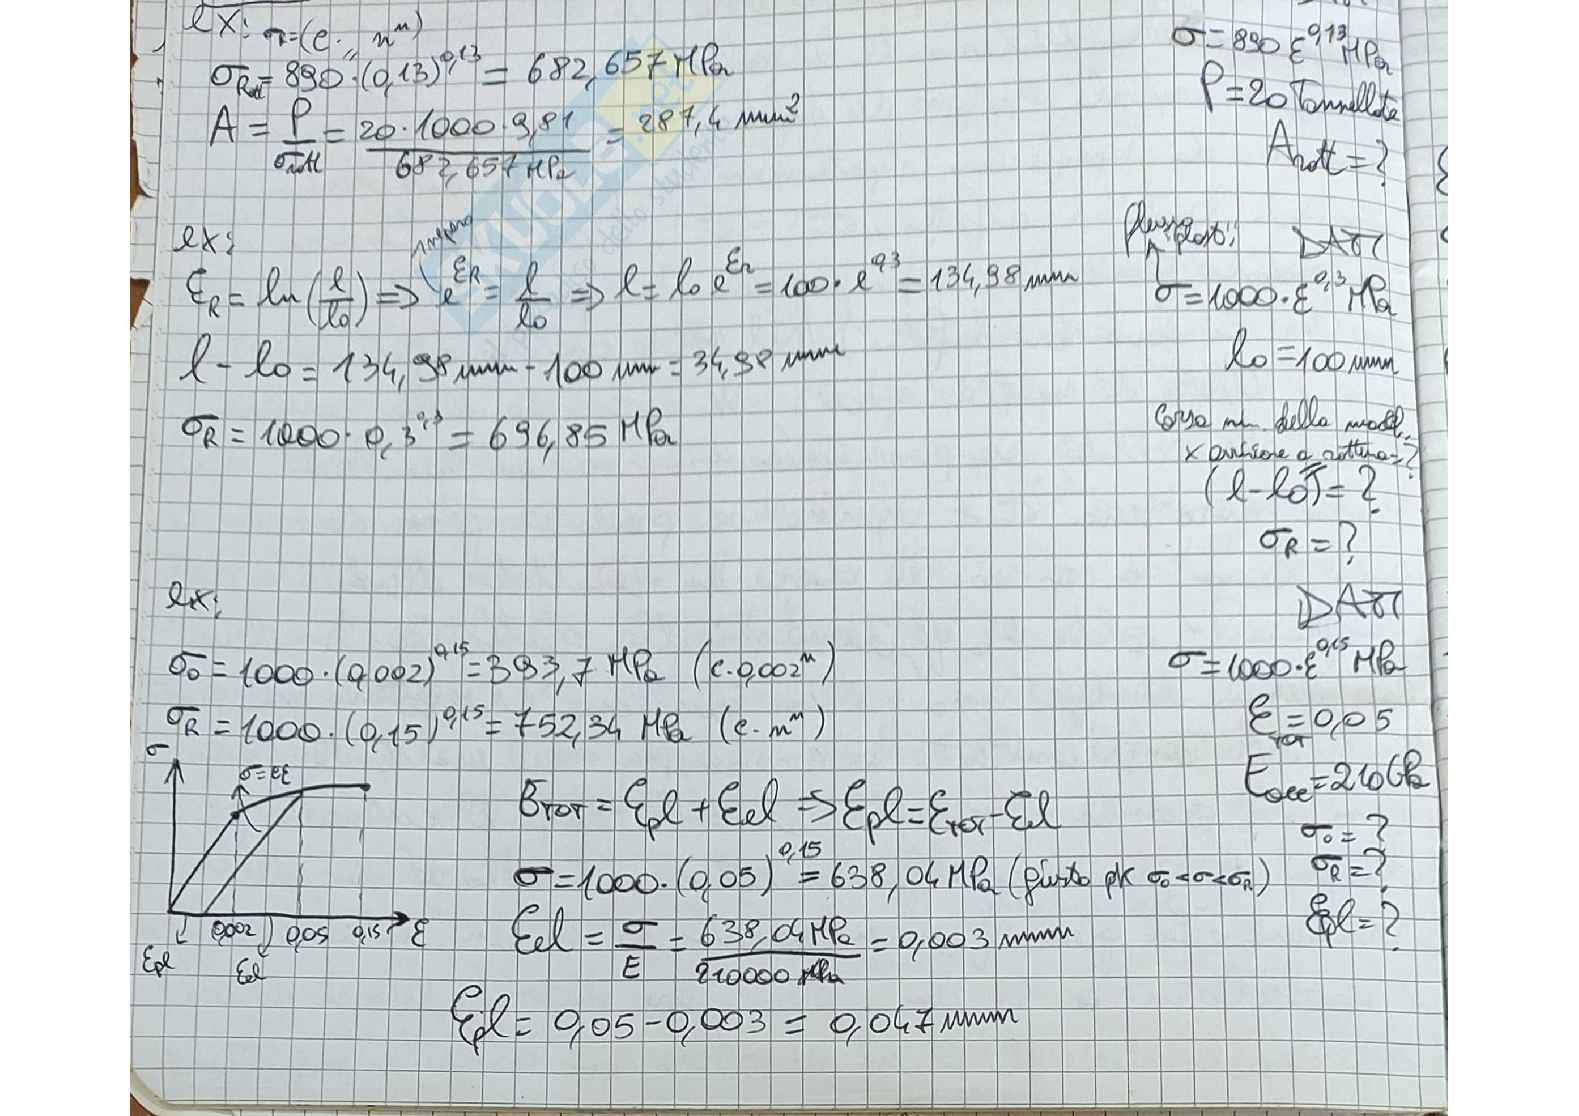 ex: σ=(c·n^n)
σ_Rott = 890·(0,13)^0,13 = 682,657 MPa
A = P/σ_rott = 20·1000·9,81 / 682,657 MPa = 287,4 mm²
σ=890 ε^0,13 MPa
P=20 Tonnellate
A_rott=?
ex:
ε_R = ln(l/l0) => e^εR = l/l0 => l = l0 e^εr = 100·e^0,3 = 134,98 mm
l - l0 = 134,98 mm - 100 mm = 34,98 mm
σ_R = 1000·0,3^0,3 = 696,85 MPa
DATI
σ=1000·ε^0,3 MPa
l0=100 mm
Corsa della
x a rottura=?
(l-l0)=?
σ_R=?
ex:
σ0 = 1000·(0,002)^0,15 = 393,7 MPa (c·0,002^n)
σ_R = 1000·(0,15)^0,15 = 752,34 MPa (c·n^n)
DATI
σ=1000·ε^0,15 MPa
ε_TOT=0,05
E_acc=210GPa
σ0=?
σ_R=?
ε_pl=?
σ
σ=Eε
0,002 0,05 0,15 ε
ε_pl ε_el
ε_TOT = ε_pl + ε_el => ε_pl = ε_TOT - ε_el
σ=1000·(0,05)^0,15 = 638,04 MPa (giusto pk σ0<σ<σ_R)
ε_el = σ/E = 638,04 MPa / 210000 MPa = 0,003 mm
ε_pl = 0,05-0,003 = 0,047 mm